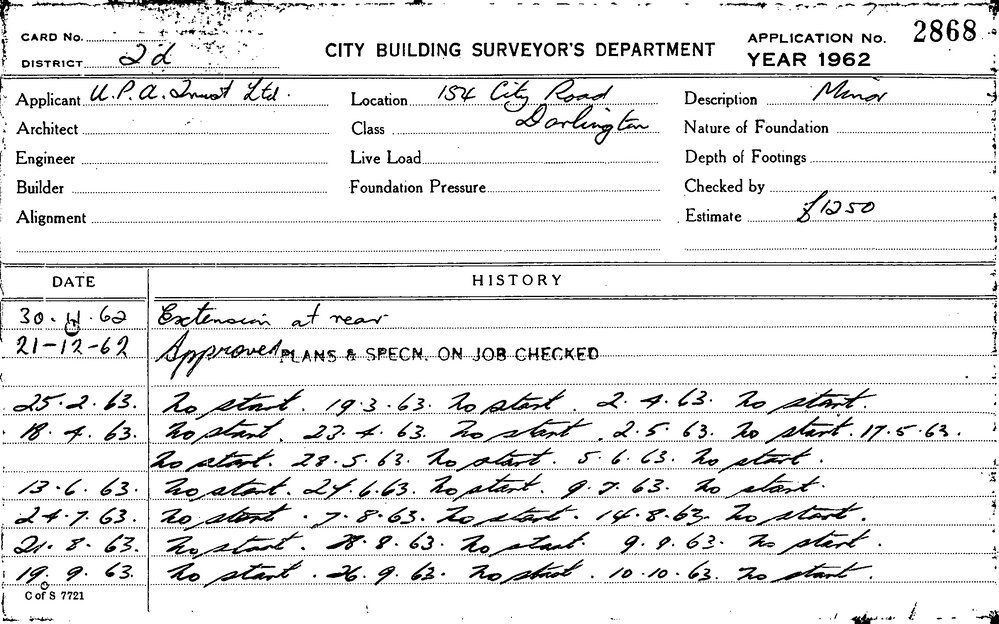 CARD No.
DISTRICT 2d
CITY BUILDING SURVEYOR'S DEPARTMENT
APPLICATION No. 2868
YEAR 1962
Applicant U.P.A. Trust Ltd. Location 154 City Road Description Minor
Architect Class Darlington Nature of Foundation
Engineer Live Load Depth of Footings
Builder Foundation Pressure Checked by
Alignment Estimate £1250
DATE HISTORY
30.11.62 Extension at rear
21-12-62 Approved PLANS & SPECN. ON JOB CHECKED
25.2.63. No start. 19.3.63. No start. 2.4.63. No start.
18.4.63. No start. 23.4.63. No start. 2.5.63. No start. 17.5.63.
No start. 28.5.63. No start. 5.6.63. No start.
13.6.63. No start. 24.6.63. No start. 9.7.63. No start.
24.7.63. No start. 7.8.63. No start. 14.8.63. No start.
21.8.63. No start. 28.8.63. No start. 9.9.63. No start.
19.9.63. No start. 26.9.63. No start. 10.10.63. No start.
C of S 7721